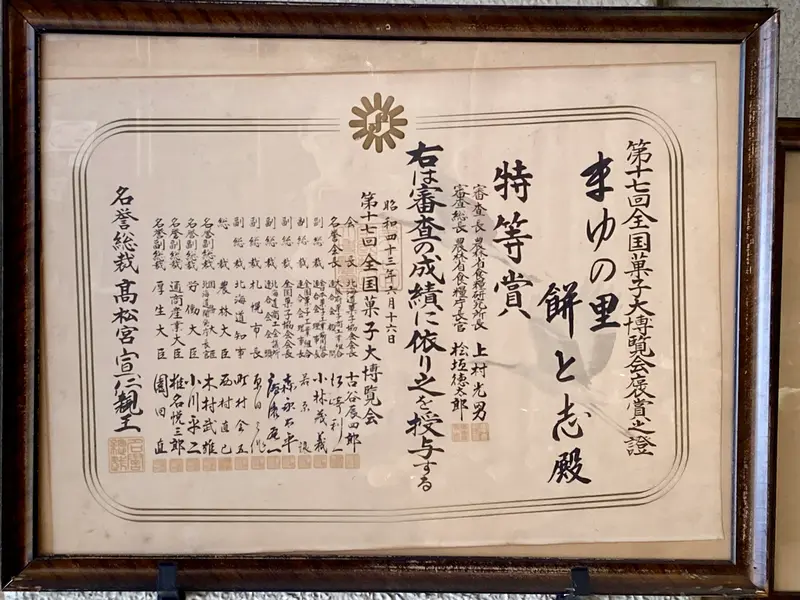 第十七回全国菓子大博覧会褒賞之證
まゆの里
餅と志殿
特等賞
審査長 農林省食糧研究所長 上村光男
審査総長 農林省食糧庁長官 桧垣徳太郎
右は審査の成績に依り之を授与する
昭和四十三年 月十六日
第十七回全国菓子大博覧会
会長 北海道菓子協会会長 古谷辰四郎
名誉会長
副総裁 小林茂義
副総裁
副総裁 全国菓子協会会長 森永太平
副総裁
副総裁 札幌市長
副総裁 北海道知事 町村金五
総裁 農林大臣 西村直己
名誉副総裁 木村武雄
名誉副総裁 労働大臣 小川平二
名誉副総裁 通商産業大臣 椎名悦三郎
名誉副総裁 厚生大臣 園田直
名誉総裁 高松宮宣仁親王